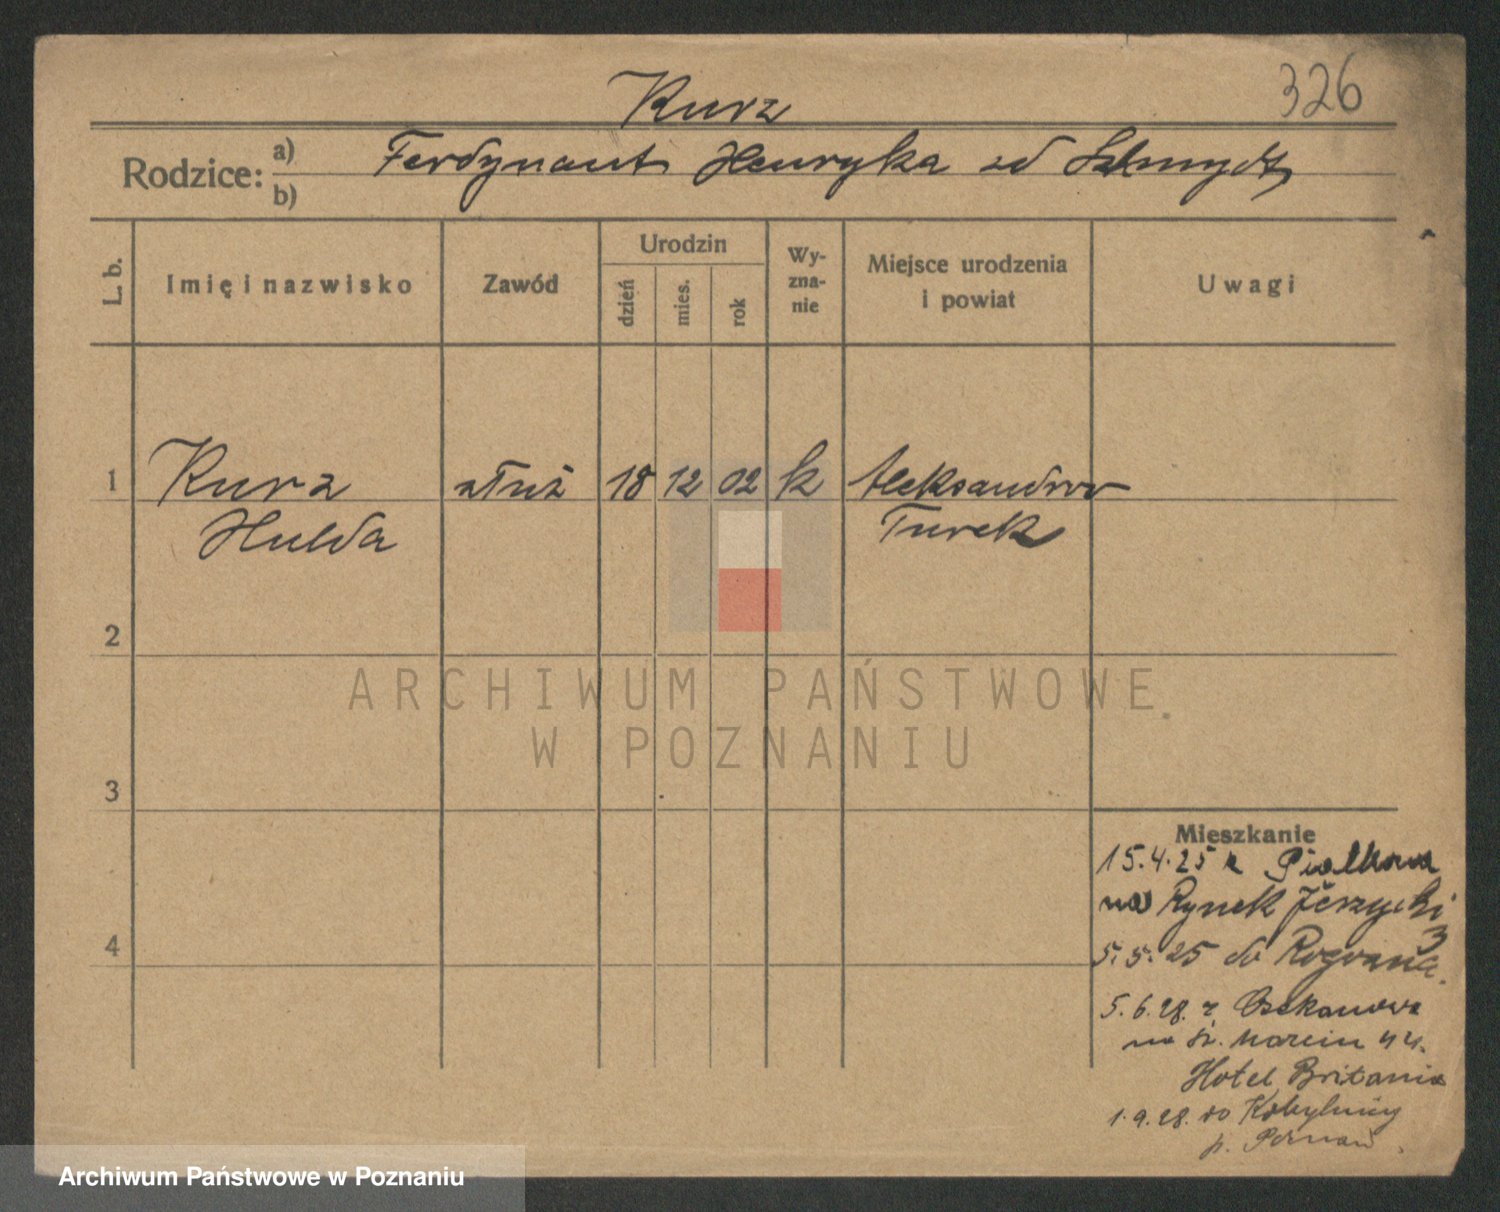 326
Kurz
Rodzice: a) Ferdynant Henryka zd Szkmydt
b)
L. b. Imię i nazwisko Zawód Urodzin dzień mies. rok Wy-zna-nie Miejsce urodzenia i powiat Uwagi
1 Kurz służ 18 12 02 k Aleksandrow
Hulda Turek
2
ARCHIWUM PAŃSTWOWE
W POZNANIU
3
Mieszkanie
15.4.25 z
na Rynek Jerzycki 3
4
5.5.25 do
5.6.28. z
na św. Marcin 44.
Hotel Britania
1.9.28. do Kobylnicy
p. Poznań
Archiwum Państwowe w Poznaniu